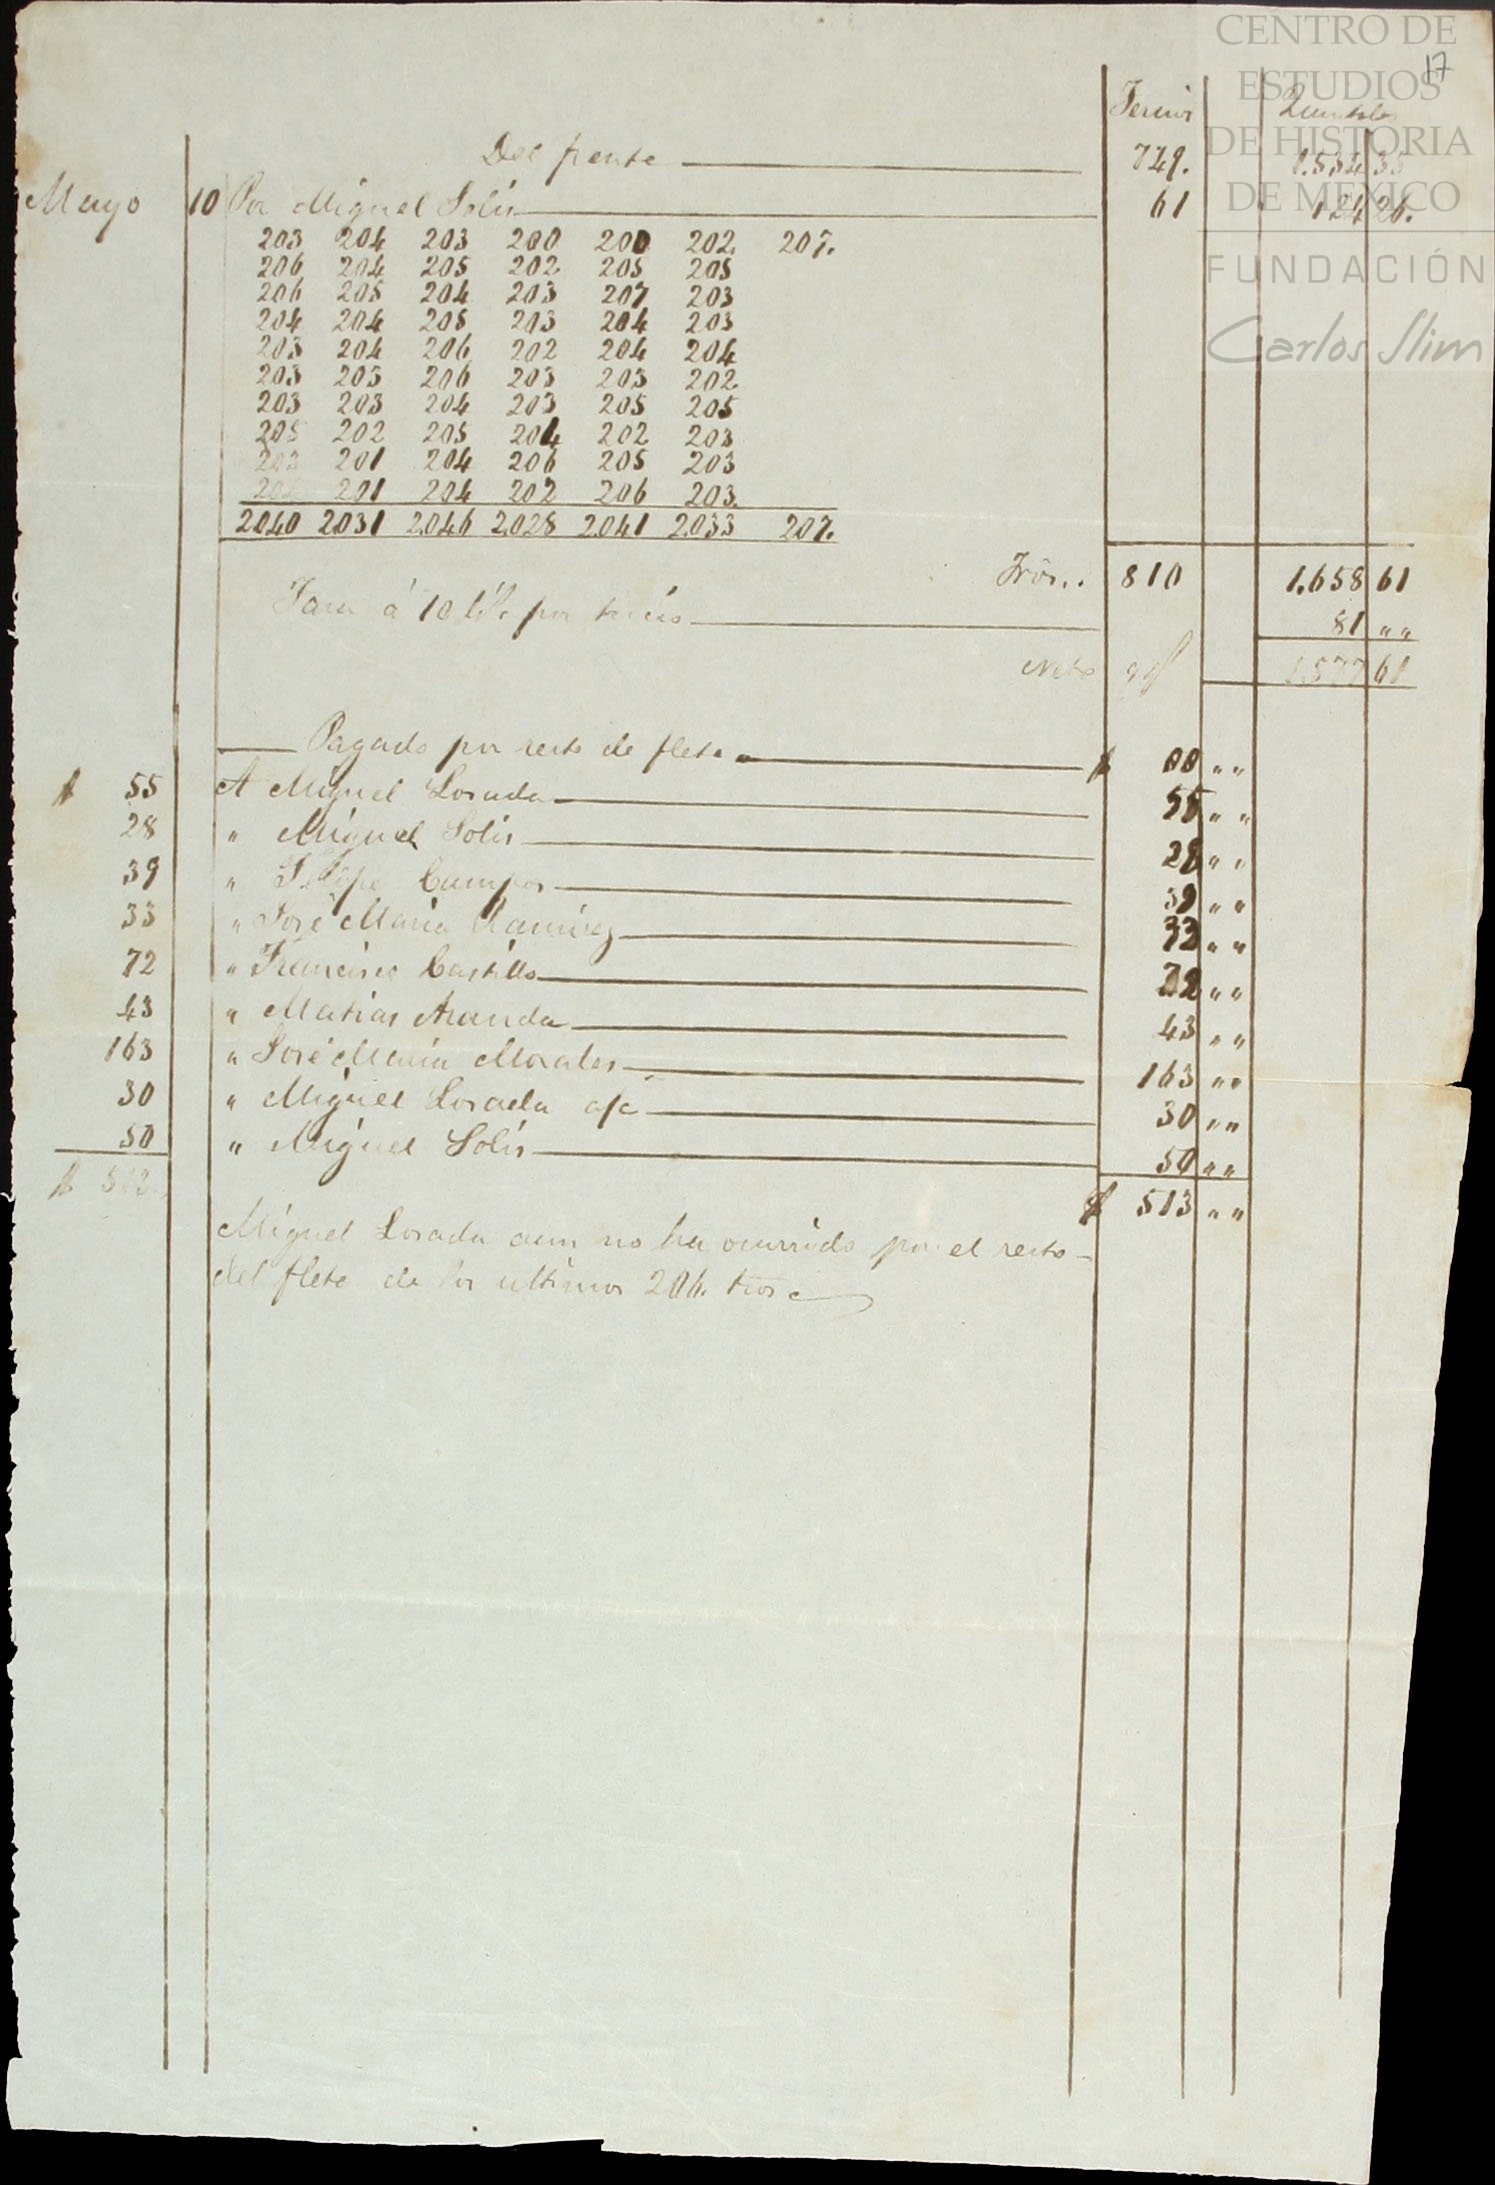 CENTRO DE
ESTUDIOS
DE HISTORIA
DE MEXICO
FUNDACIÓN
Carlos Slim
17
Tercios Quintales
Del frente 749. 1.534 35
Mayo 10 Por Miguel Solis 61 124 26.
203 204 203 200 200 202 207.
206 204 205 202 205 205
206 205 204 203 207 203
204 204 205 203 204 203
203 204 206 202 204 204
203 203 206 203 203 202
203 203 204 203 205 205
205 202 205 204 202 203
203 201 204 206 205 203
204 201 204 202 206 203.
2040 2031 2.046 2.028 2.041 2.033 207.
Trôs.. 810 1.658 61
Tara á 10 lbs por tercio 81 " "
Neto 1.577 61
Pagado por resto de flete $ 00 " "
$ 55 A Miguel Losada 55 " "
28 " Miguel Solis 28 " "
39 " Felipe Campos 39 " "
33 " José Maria Ramirez 33 " "
72 " Francisco Castillo 72 " "
43 " Matias Aranda 43 " "
163 " José Maria Morales 163 " "
30 " Miguel Losada a/c 30 " "
50 " Miguel Solis 50 " "
$ 513 $ 513 " "
Miguel Losada aun no ha ocurrido por el resto
del flete de los ultimos 206. tros